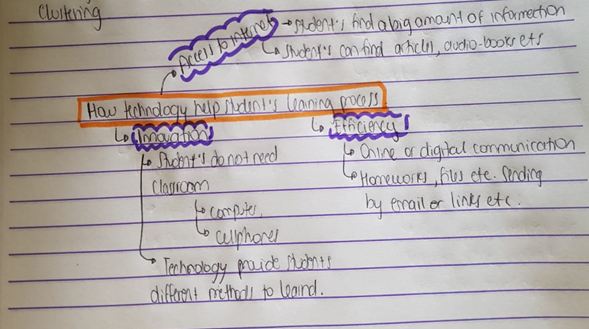 Clustering
Access to internet
Student's find a big amount of information
Student's can find articles, audio-books ets
How technology help student's learning process
Innovation
Student's do not need
classroom
computer
cellphones
Technology provide students
different methods to learnd.
Efficiency
Online or digital communication
Homeworks, files etc. sending
by email or links etc.